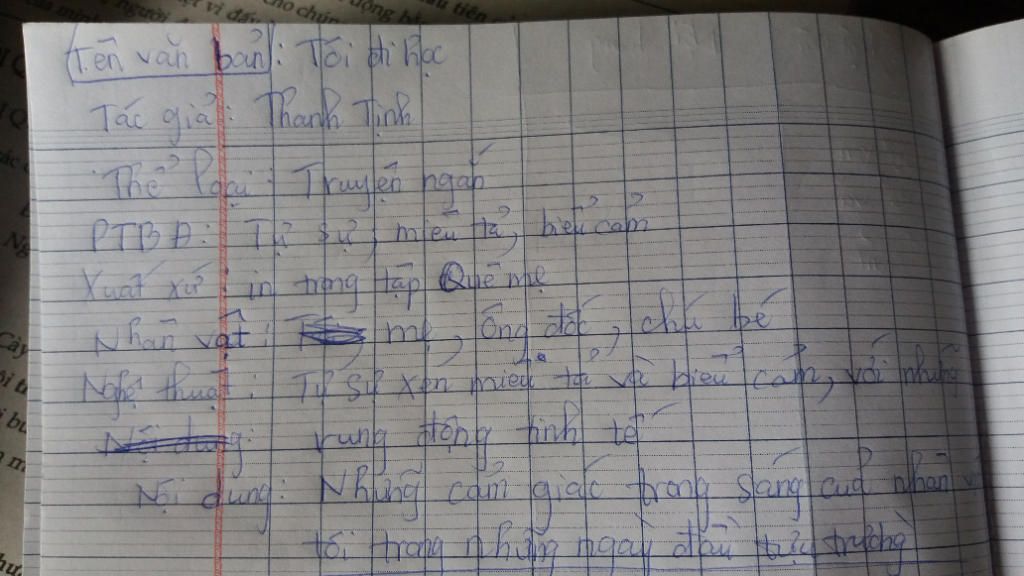 Tên văn bản: Tôi đi học
Tác giả: Thanh Tịnh
Thể loại: Truyện ngắn
PTBĐ: Tự sự, miêu tả, biểu cảm
Xuất xứ: in trong tập Quê mẹ
Nhân vật: mẹ, ông đốc, chú bé
Nghệ thuật: Tự sự xen miêu tả và biểu cảm, với những
rung động tinh tế
Nội dung: Những cảm giác trong sáng của nhân
tôi trong những ngày đầu tựu trường